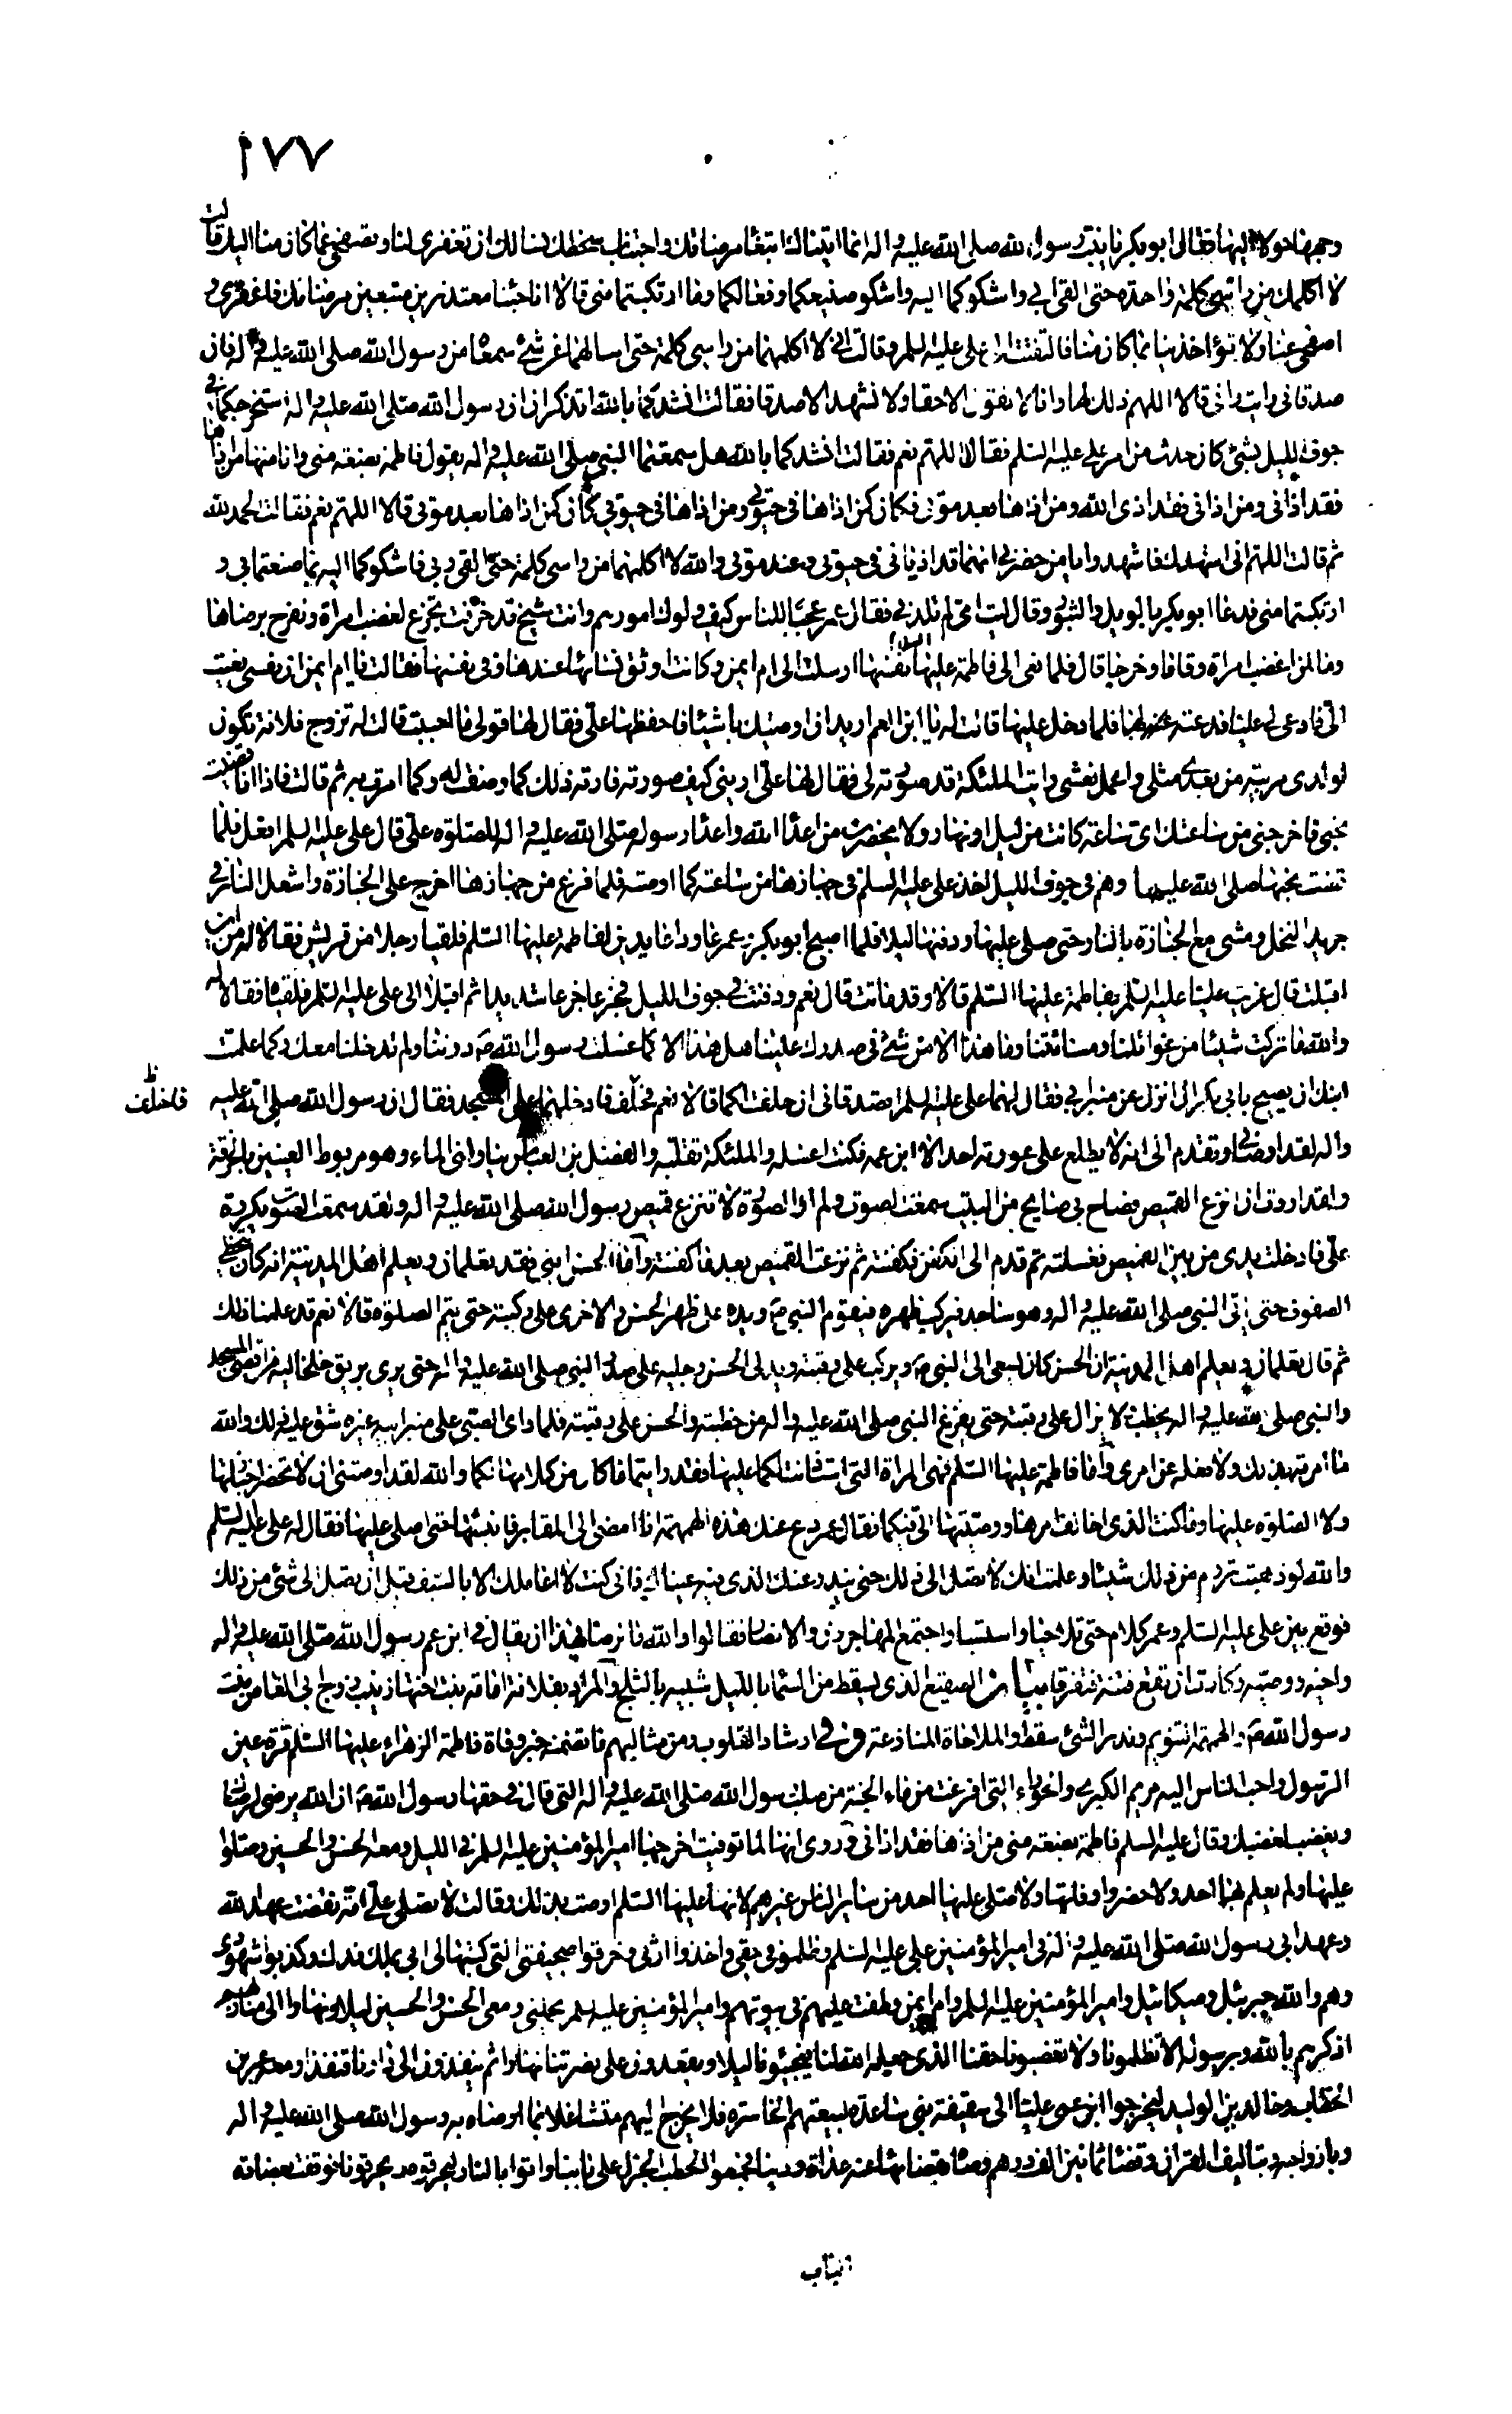 ١٧٧
وجهها حولا اليها فقال ابو بكر يا بنت رسول الله صلى الله عليه واله انما اتيناك ابتغاء مرضاتك واجتناب سخطك نسالك ان تغفرى لنا وتصفحى عما كان منا اليك قالت
لا اكلمكما من راسى كلمة واحدة حتى القى ابى واشكوكما اليه واشكو صنيعكما وفعالكما وما ارتكبتما منى قالا انا جئنا معتذرين مبتغين مرضاتك فاغفرى و
اصفحى عنا ولا تؤاخذينا بما كان منا فالتفتت الى على عليه السلم وقالت انى لا اكلمهما من راسى كلمة حتى اسالهما عن شئ سمعاه من رسول الله صلى الله عليه واله فان
صدقانى رايت رائى قالا اللهم ذلك لها وانا لا نقول الا حقا ولا نشهد الا صدقا فقالت انشدكما بالله اتذكران ان رسول الله صلى الله عليه واله استخرجكما فى
جوف الليل بشئ كان حدث من امر على عليه السلم فقالا اللهم نعم فقالت انشدكما بالله هل سمعتما النبى صلى الله عليه واله يقول فاطمة بضعة منى وانا منها من اذاها
فقد اذانى ومن اذانى فقد اذى الله ومن اذاها بعد موتى فكان كمن اذاها فى حيوتى ومن اذاها فى حيوتى كان كمن اذاها بعد موتى قالا اللهم نعم فقالت الحمد لله
ثم قالت اللهم انى اشهدك فاشهدوا يا من حضرنى انهما قد اذيانى فى حيوتى وعند موتى والله لا اكلمهما من راسى كلمة حتى القى ربى فاشكوكما اليه بما صنعتما بى و
ارتكبتما منى فدعا ابو بكر بالويل والثبور وقال ليت امى لم تلدنى فقال عمر عجبا للناس كيف ولوك امورهم وانت شيخ قد خرفت تجزع لغضب امراة وتفرح برضاها
وما لمن اغضب امراة وقاما وخرجا قال فلما نعى الى فاطمة عليها السلام نفسها ارسلت الى ام ايمن وكانت اوثق نسائها عندها وفى نفسها فقالت يا ام ايمن ان نفسى نعيت
الى فادعى لى عليا فدعته لها فلما دخل عليها قالت له يا ابن العم اريد ان اوصيك باشياء فاحفظها على فقال لها قولى ما احببت قالت له تزوج فلانة تكون
لولدى مربية من بعدى مثلى واعمل نعشى رايت الملئكة قد صورته لى فقال لها على ارينى كيف صورته فارته ذلك كما وصفت له وكما امرت به ثم قالت فاذا انا قضيت
نحبى فاخرجنى من ساعتك اى ساعة كانت من ليل او نهار ولا يحضرن من اعداء الله واعداء رسوله صلى الله عليه واله للصلوة على قال على عليه السلم افعل فلما
قضت نحبها صلى الله عليها وهم فى جوف الليل اخذ على عليه السلم فى جهازها من ساعته كما اوصته فلما فرغ من جهازها اخرج على الجنازة واشعل النار فى
جريد النخل ومشى مع الجنازة بالنار حتى صلى عليها ودفنها ليلا فلما اصبح ابو بكر وعمر عاودا عايدين لفاطمة عليها السلم فلقيا رجلا من قريش فقالا له من اين
اقبلت قال عزيت عليا عليه السلم بفاطمة عليها السلم قالا وقد ماتت قال نعم ودفنت فى جوف الليل فجزعا جزعا شديدا ثم اقبلا الى على عليه السلم فلقياه فقالا له
والله ما تركت شيئا من غوائلنا ومساءتنا وما هذا الا من شئ فى صدرك علينا هل هذا الا كما غسلت رسول الله ص دوننا ولم تدخلنا معك وكما علمت
ابنك ان يصيح بابى بكر ان انزل عن منبر ابى فقال لهما على عليه السلم اتصدقانى ان حلفت لكما قالا نعم فحلف فادخلهما على المسجد فقال ان رسول الله صلى الله عليه
فاحلف ظ
واله لقد اوصانى وتقدم الى انه لا يطلع على عورته احد الا ابن عمه فكنت اغسله والملئكة تقلبه والفضل بن العباس يناولنى الماء وهو مربوط العينين بالخرقة
ولقد اردت ان انزع القميص فصاح بى صايح من البيت سمعت الصوت ولم ار الصورة لا تنزع قميص رسول الله صلى الله عليه واله ولقد سمعت الصوت يكرره
على فادخلت يدى من بين القميص فغسلته ثم قدم الى الكفن فكفنته ثم نزعت القميص بعد ما كفنته واما الحسن ابنى فقد تعلمان ويعلم اهل المدينة انه كان يتخطى
الصفوف حتى ياتى النبى صلى الله عليه واله وهو ساجد فيركب ظهره فيقوم النبى ص ويده على ظهر الحسن والاخرى على ركبته حتى يتم الصلوة قالا نعم قد علمنا ذلك
ثم قال تعلمان ويعلم اهل المدينة ان الحسن كان يسعى الى النبى ص ويركب على رقبته ويدلى الحسن رجليه على صدر النبى صلى الله عليه واله حتى يرى بريق خلخاليه من اقصى المسجد
والنبى صلى الله عليه واله يخطب لا يزال على رقبته حتى يفرغ النبى صلى الله عليه واله من خطبته والحسن على رقبته فلما راى الصبى على منبر ابيه غيره شق عليه ذلك والله
ما امرته بذلك ولا فعله عن امرى واما فاطمة عليها السلم فهى المراة التى استاذنت لكما عليها فقد رايتما ما كان من كلامها لكما والله لقد اوصتنى ان لا تحضرا جنازتها
ولا الصلوة عليها وما كنت الذى اخالف امرها ووصيتها الى فيكما فقال عمر دع عنك هذه الهمهمة انا امضى الى المقابر فانبشها حتى اصلى عليها فقال له على عليه السلم
والله لو ذهبت تروم من ذلك شيئا وعلمت انك لا تصل الى ذلك حتى يندر عنك الذى فيه عيناك فانى كنت لا اعاملك الا بالسيف قبل ان تصل الى شئ من ذلك
فوقع بين على عليه السلم وعمر كلام حتى تلاحيا واستسبا واجتمع المهاجرون والانصار فقالوا والله ما نرضى بهذا ان يقال فى ابن عم رسول الله صلى الله عليه واله
واخيه ووصيه وكادت ان تقع فتنة فتفرقا بيان الصقيع الذى يسقط من السماء بالليل شبيه بالثلج والمراد بفلانة امامة بنت اختها زينب زوج ابى العاص بنت
رسول الله ص والهمهمة التنويم وندر الشئ سقط والملاحاة المنازعة فى ارشاد القلوب ومن مثالبهم ما تضمنه خبر وفاة فاطمة الزهراء عليها السلم قرة عين
الرسول واحب الناس اليه مريم الكبرى والحوراء التى افرغت من ماء الجنة من صلب رسول الله صلى الله عليه واله التى قال فى حقها رسول الله ص ان الله يرضى لرضاك
ويغضب لغضبك وقال عليه السلم فاطمة بضعة منى من اذاها فقد اذانى وروى انها لما توفيت اخرجها امير المؤمنين عليه السلم فى الليل ومعه الحسن والحسين وصلوا
عليها ولم يعلم بها احد ولا حضروا وفاتها ولا صلى عليها احد من ساير الناس غيرهم لانها عليها السلم اوصت بذلك وقالت لا تصلى على امة نقضت عهد الله
وعهد ابى رسول الله صلى الله عليه واله فى امير المؤمنين على عليه السلم وظلمونى حقى واخذوا ارثى وخرقوا صحيفتى التى كتبها لى ابى بملك فدك وكذبوا شهودى
وهم والله جبرئيل وميكائيل وامير المؤمنين عليه السلم وام ايمن وطفت عليهم فى بيوتهم وامير المؤمنين عليه السلم يحملنى ومعى الحسن والحسين ليلا ونهارا الى منازلهم
اذكرهم بالله وبرسوله الا تظلمونا ولا تغصبونا حقنا الذى جعله الله لنا فيجيبونا ليلا ويقعدون عن نصرتنا نهارا ثم ينفذون الى دارنا قنفذا ومعه عمر بن
الخطاب وخالد بن الوليد ليخرجوا ابن عمى عليا الى سقيفة بنى ساعدة لبيعتهم الخاسرة فلا يخرج اليهم متشاغلا بما اوصاه به رسول الله صلى الله عليه واله
وبازواجه وبتاليف القران وقضاء ثمانين الف درهم وصاه بقضائها عنه عداة ودينا فجمعوا الحطب الجزل على بابنا واتوا بالنار ليحرقوه ويحرقونا فوقفت بعضادة
الباب